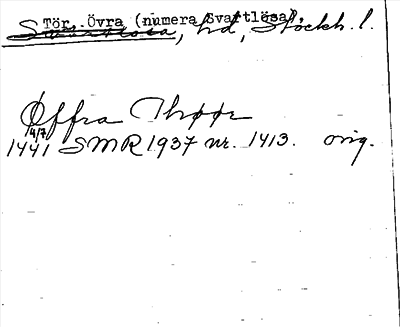 Tör, Övra (numera Svartlösa)
Svartlösa, hd, Stockh. l.
Øffra Thøør
4/7
1441 SMR 1937 nr. 1413. orig.